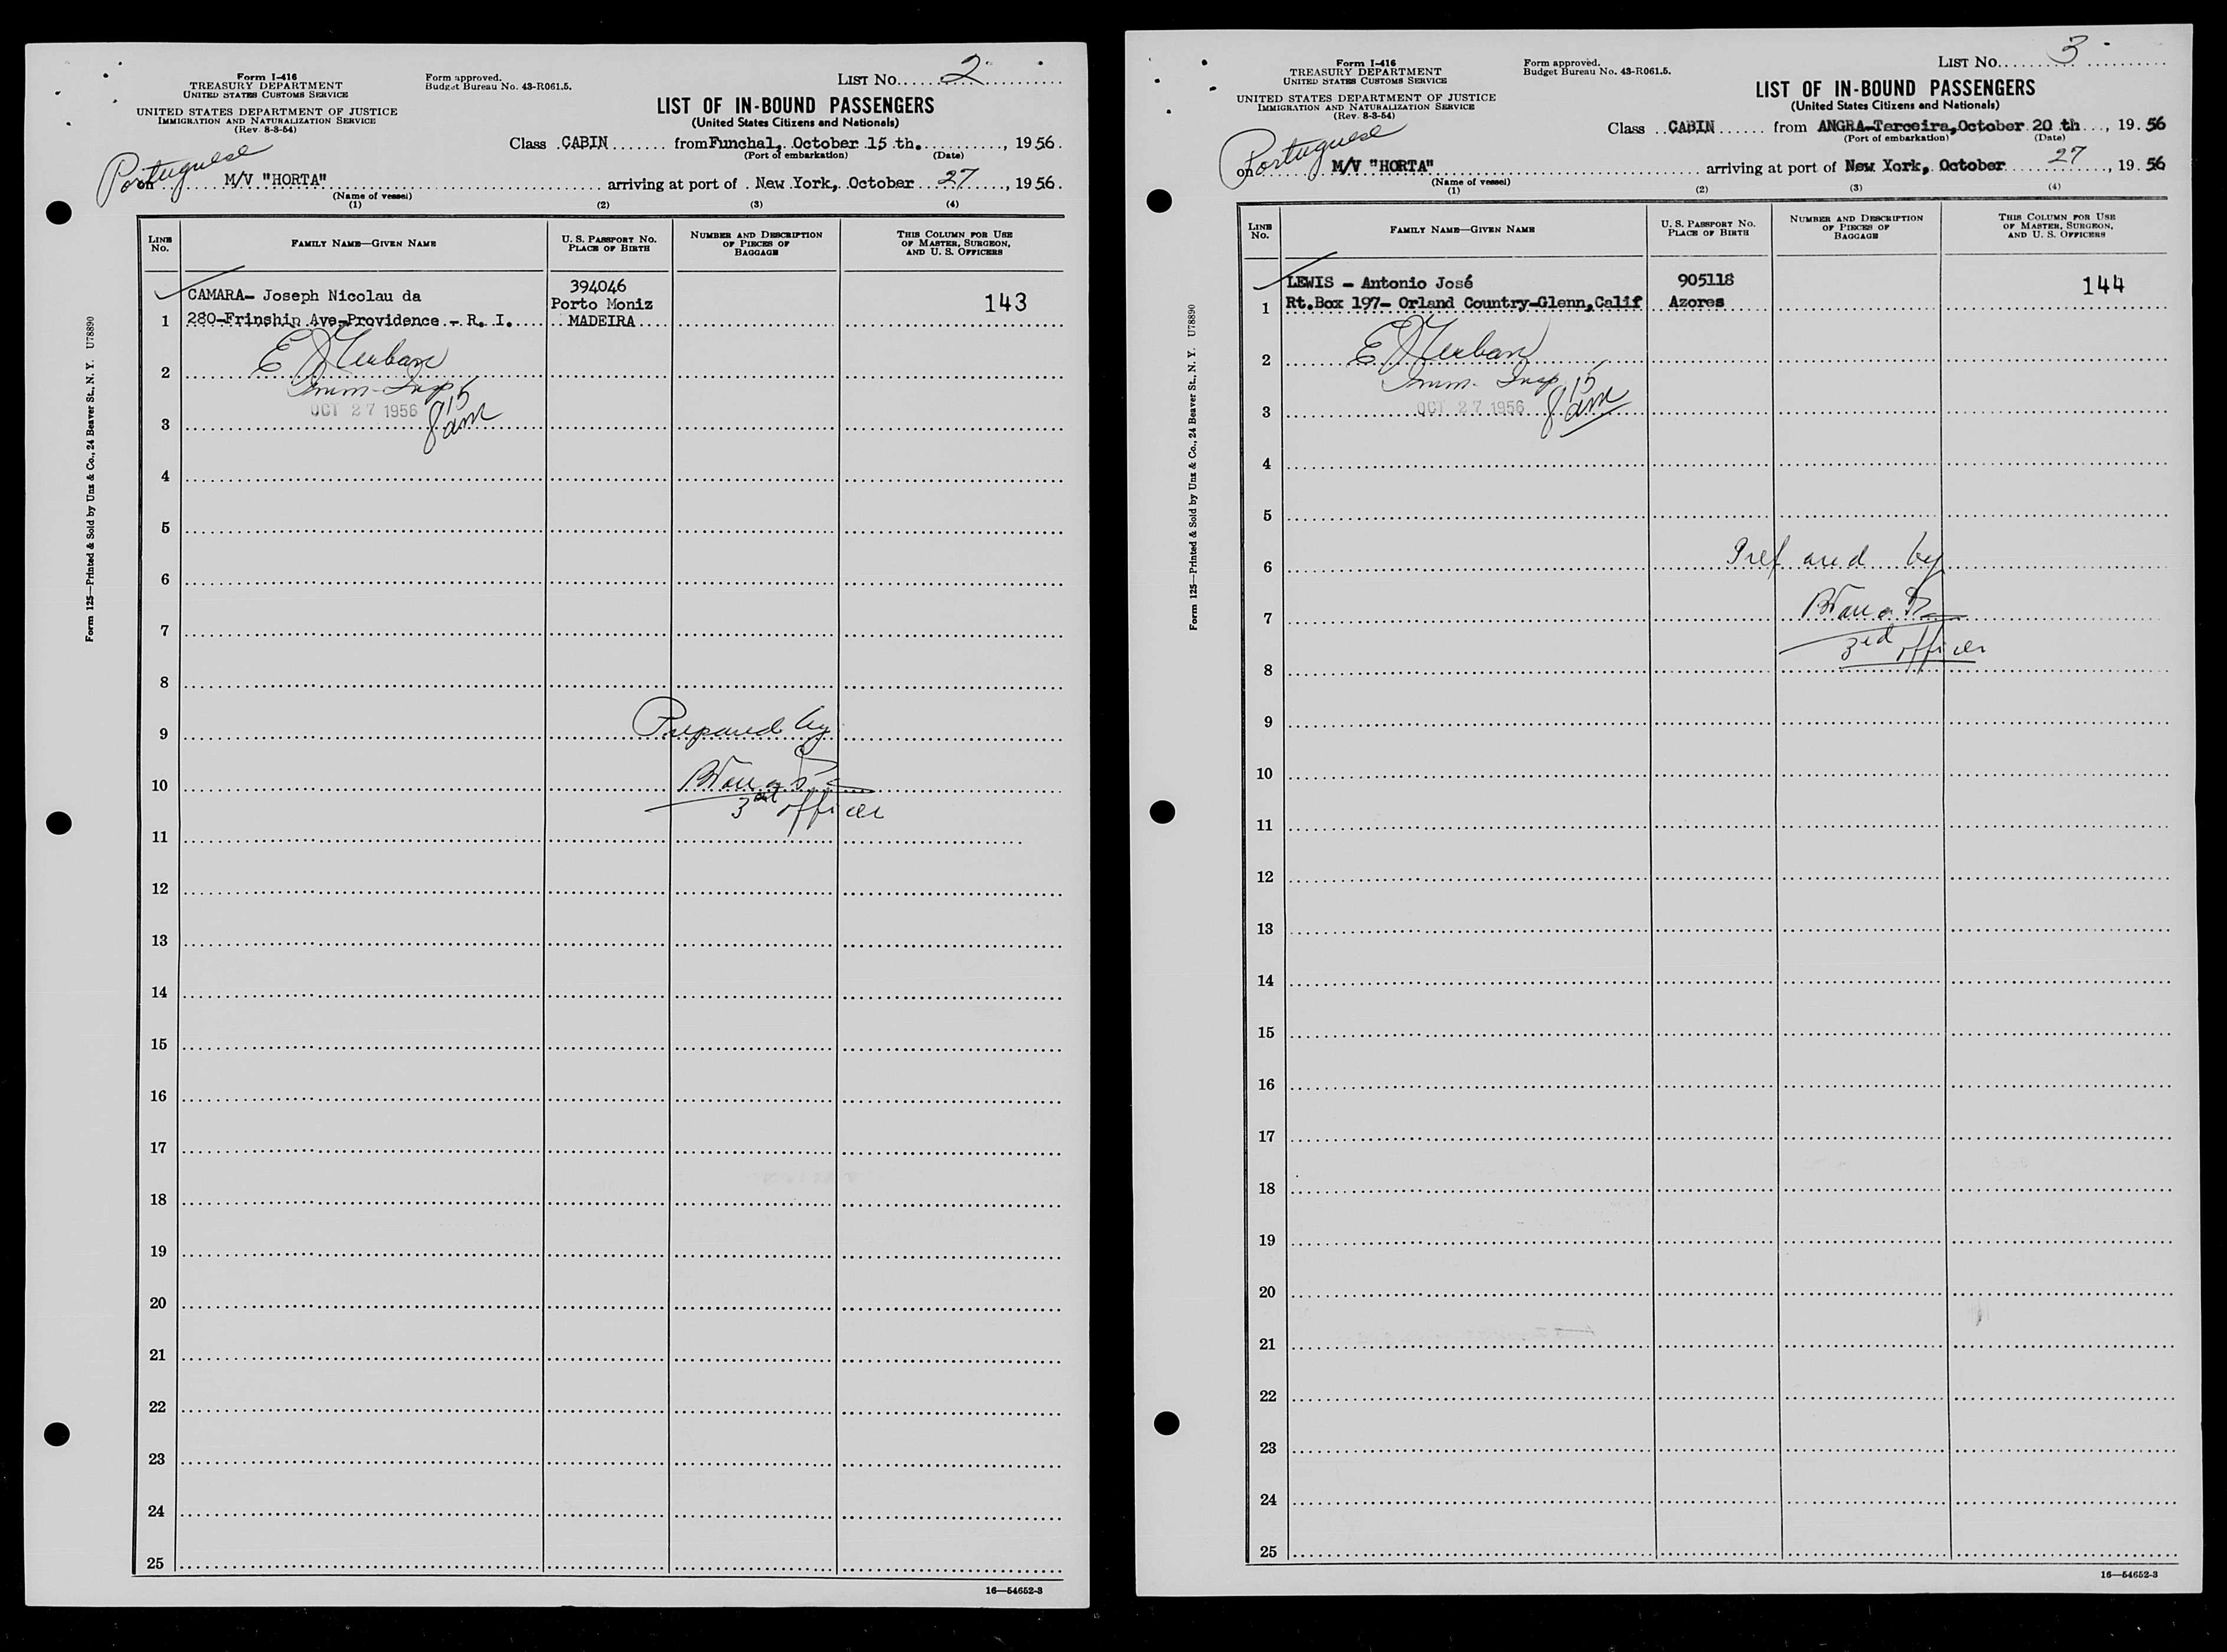 Form I-416
TREASURY DEPARTMENT
UNITED STATES CUSTOMS SERVICE
UNITED STATES DEPARTMENT OF JUSTICE
IMMIGRATION AND NATURALIZATION SERVICE
(Rev. 8-3-54)
Form approved.
Budget Bureau No. 43-R061.5.
LIST No. 2
LIST OF IN-BOUND PASSENGERS
(United States Citizens and Nationals)
Class CABIN from Funchal, October 15 th. , 1956.
(Port of embarkation) (Date)
Portuguese
on M/V "HORTA" arriving at port of New York, October 27, 1956.
(Name of vessel)
(1) (2) (3) (4)
LINE No. FAMILY NAME—GIVEN NAME U. S. PASSPORT NO. PLACE OF BIRTH NUMBER AND DESCRIPTION OF PIECES OF BAGGAGE THIS COLUMN FOR USE OF MASTER, SURGEON, AND U. S. OFFICERS
394046
CAMARA- Joseph Nicolau da Porto Moniz 143
1 280-Frinship Ave-Providence - R. I. MADEIRA
2
Imm. Insp
OCT 27 1956 8 15 am
3
4
5
6
7
8
9 Prepared by
10
3rd officer
11
12
13
14
15
16
17
18
19
20
21
22
23
24
25
16—54652-3
Form 125—Printed & Sold by Unz & Co., 24 Beaver St., N. Y. U78890
Form I-416
TREASURY DEPARTMENT
UNITED STATES CUSTOMS SERVICE
UNITED STATES DEPARTMENT OF JUSTICE
IMMIGRATION AND NATURALIZATION SERVICE
(Rev. 8-3-54)
Form approved.
Budget Bureau No. 43-R061.5.
LIST No. 3
LIST OF IN-BOUND PASSENGERS
(United States Citizens and Nationals)
Class CABIN from ANGRA-Terceira, October 20 th , 19 56
(Port of embarkation) (Date)
Portuguese
on M/V "HORTA" arriving at port of New York, October 27, 19 56
(Name of vessel)
(1) (2) (3) (4)
LINE No. FAMILY NAME—GIVEN NAME U. S. PASSPORT NO. PLACE OF BIRTH NUMBER AND DESCRIPTION OF PIECES OF BAGGAGE THIS COLUMN FOR USE OF MASTER, SURGEON, AND U. S. OFFICERS
LEWIS - Antonio José 905118 144
1 Rt.Box 197- Orland Country-Glenn,Calif Azores
2
Imm. Insp
OCT 27 1956 8 15 am
3
4
5
6 Prepared by
7
3rd officer
8
9
10
11
12
13
14
15
16
17
18
19
20
21
22
23
24
25
16—54652-3
Form 125—Printed & Sold by Unz & Co., 24 Beaver St., N. Y. U78890